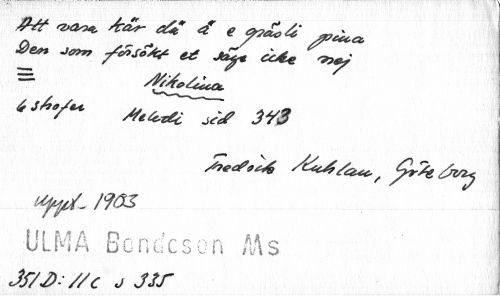 Att vara kär dä ä e gräsli pina
Den som försökt et säge icke nej
Nikolina
6 strofer Melodi sid 343
Fredrik Kuhlau, Göteborg
uppt. 1903
ULMA Bondeson Ms
351 D: 11 C s 335